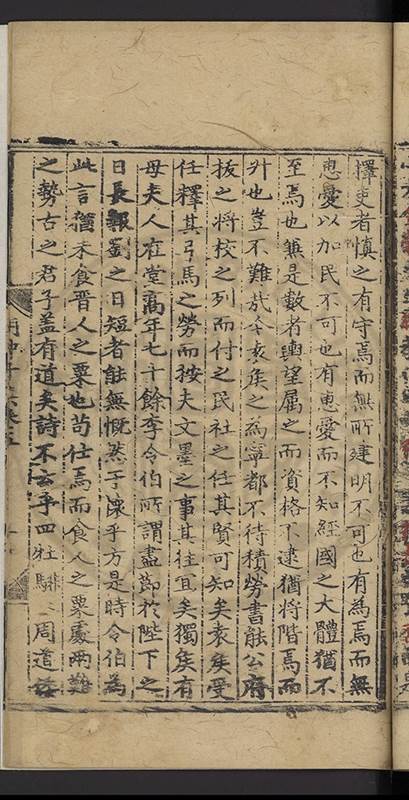 擇吏者慎之有守焉而無所建明不可也有為焉而無
恵愛以加民不可也有恵愛而不知經國之大體猶不
至焉也兼是數者輿望屬之而資格不逮猶將階焉而
升也豈不難哉今袁矦之為寧都不待積勞書能公府
拔之將校之列而付之民社之任其賢可知矣袁矦受
任釋其弓馬之勞而按夫文墨之事其往宜矣獨矦有
母夫人在堂高年七十餘李令伯所謂盡節於陛下之
日長報劉之日短者能無慨然于懐乎方是時令伯為
此言猶未食晋人之粟也茍仕焉而食人之粟處兩難
之勢古之君子盖有道矣詩不云乎四牡騑〻周道